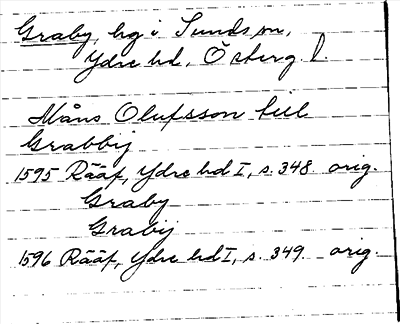 Graby, hg i Sunds sn,
Ydre hd, Österg. l.
Måns Olufsson till
Grabbij
1595 Rääf, Ydre hd I, s. 348. orig.
Graby
Grabij
1596 Rääf, Ydre hd I, s. 349. orig.